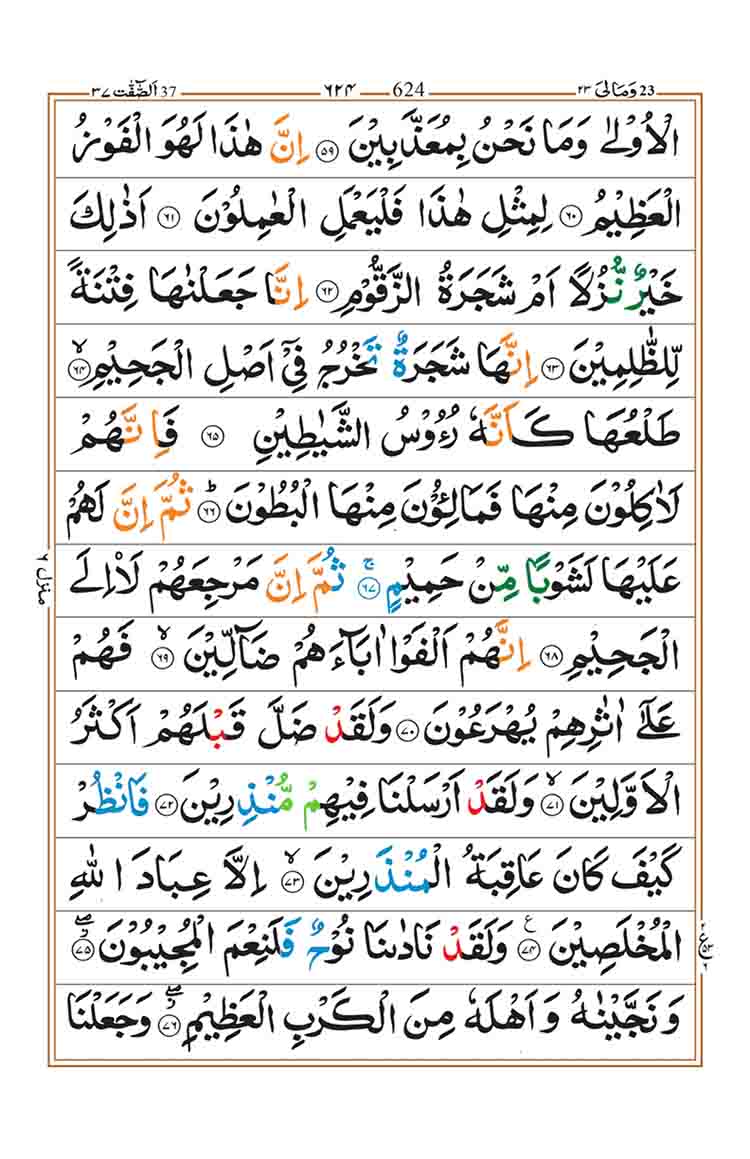 اَلصّٰٓفّٰت ٣٧ 37 ٦٢٤ 624 وَمَا لِىَ ٢٣ 23
الْاُوْلٰى وَمَا نَحْنُ بِمُعَذَّبِيْنَ ۝٥٩ اِنَّ هٰذَا لَهُوَ الْفَوْزُ
الْعَظِيْمُ ۝٦٠ لِمِثْلِ هٰذَا فَلْيَعْمَلِ الْعٰمِلُوْنَ ۝٦١ اَذٰلِكَ
خَيْرٌ نُّزُلًا اَمْ شَجَرَةُ الزَّقُّوْمِ ۝٦٢ اِنَّا جَعَلْنٰهَا فِتْنَةً
لِّلظّٰلِمِيْنَ ۝٦٣ اِنَّهَا شَجَرَةٌ تَخْرُجُ فِيْۤ اَصْلِ الْجَحِيْمِ ۙ۝٦٤
طَلْعُهَا كَاَنَّهٗ رُءُوْسُ الشَّيٰطِيْنِ ۝٦٥ فَاِنَّهُمْ
لَاٰكِلُوْنَ مِنْهَا فَمَالِـُٔوْنَ مِنْهَا الْبُطُوْنَ ؕ۝٦٦ ثُمَّ اِنَّ لَهُمْ
عَلَيْهَا لَشَوْبًا مِّنْ حَمِيْمٍ ۚ۝٦٧ ثُمَّ اِنَّ مَرْجِعَهُمْ لَا۟اِلَى
الْجَحِيْمِ ۝٦٨ اِنَّهُمْ اَلْفَوْا اٰبَآءَهُمْ ضَآلِّيْنَ ۙ۝٦٩ فَهُمْ
عَلٰۤى اٰثٰرِهِمْ يُهْرَعُوْنَ ۝٧٠ وَلَقَدْ ضَلَّ قَبْلَهُمْ اَكْثَرُ
الْاَوَّلِيْنَ ۙ۝٧١ وَلَقَدْ اَرْسَلْنَا فِيْهِمْ مُّنْذِرِيْنَ ۝٧٢ فَانْظُرْ
كَيْفَ كَانَ عَاقِبَةُ الْمُنْذَرِيْنَ ۙ۝٧٣ اِلَّا عِبَادَ اللهِ
الْمُخْلَصِيْنَ ۝٧٤ ع وَلَقَدْ نَادٰىنَا نُوْحٌ فَلَنِعْمَ الْمُجِيْبُوْنَ ۖ۝٧٥
وَنَجَّيْنٰهُ وَاَهْلَهٗ مِنَ الْكَرْبِ الْعَظِيْمِ ۖ۝٧٦ وَجَعَلْنَا
منزل ٦